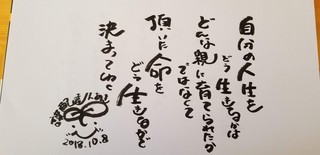 自分の人生を
どう生きるかは
どんな親に育てられたか
ではなくて
頂いた命を
どう生きるかで
決まってゆく
2018.10.8